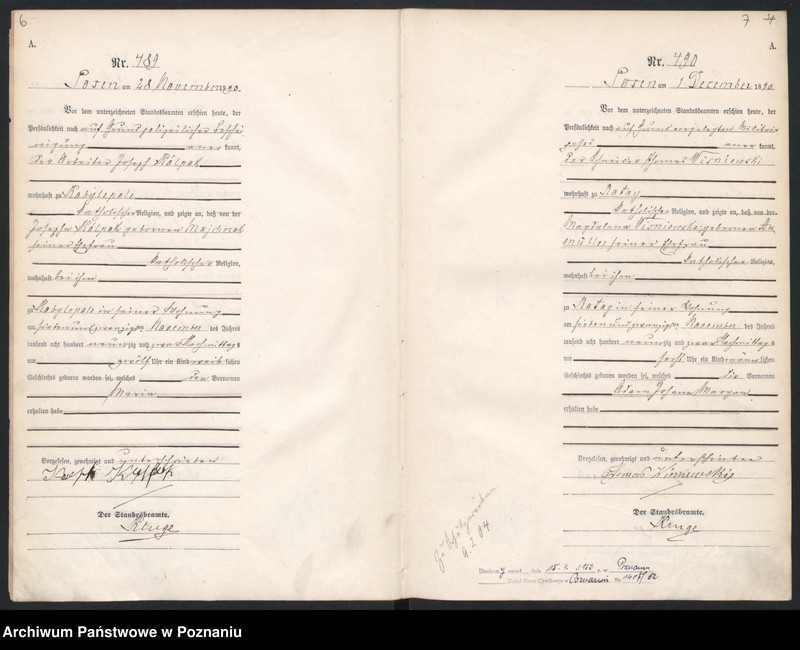 6
A.
Nr. 489
Posen am 28 November 1890
Vor dem unterzeichneten Standesbeamten erschien heute, der
Persönlichkeit nach auf Grund polizeilicher Beschei-
nigung aner kannt,
der Arbeiter Joseph Kálpak
wohnhaft zu Kobylepole
katholischer Religion, und zeigte an, daß von der
Josepha Kálpak geborenen Majchrzak
seiner Ehefrau
katholischer Religion,
wohnhaft bei ihm
zu Kobylepole in seiner Wohnung
am siebenundzwanzigten November des Jahres
tausend acht hundert neunzig und zwar Nachmittag s
um zwölf Uhr ein Kind weib lichen
Geschlechts geboren worden sei, welches den Vornamen
Maria
erhalten habe
Vorgelesen, genehmigt und unterschrieben
Der Standesbeamte.
Kruge
7
A.
Nr. 490
Posen am 1 December 1890
Vor dem unterzeichneten Standesbeamten erschien heute, der
Persönlichkeit nach auf Grund vorgelegten Militair-
passes aner kannt,
der Schneider Thomas Wisniewski
wohnhaft zu Rataj
katholischer Religion, und zeigte an, daß von der
Magdalena Wisniewska geborenen
seiner Ehefrau
katholischer Religion,
wohnhaft bei ihm
zu Rataj in seiner Wohnung
am siebenundzwanzigten November des Jahres
tausend acht hundert neunzig und zwar Nachmittag s
um sechs Uhr ein Kind männ lichen
Geschlechts geboren worden sei, welches die Vornamen
Adam Johann
erhalten habe
Vorgelesen, genehmigt und unterschrieben
Thomas Wisniewski
Der Standesbeamte.
Kruge
9.2.04
Archiwum Państwowe w Poznaniu